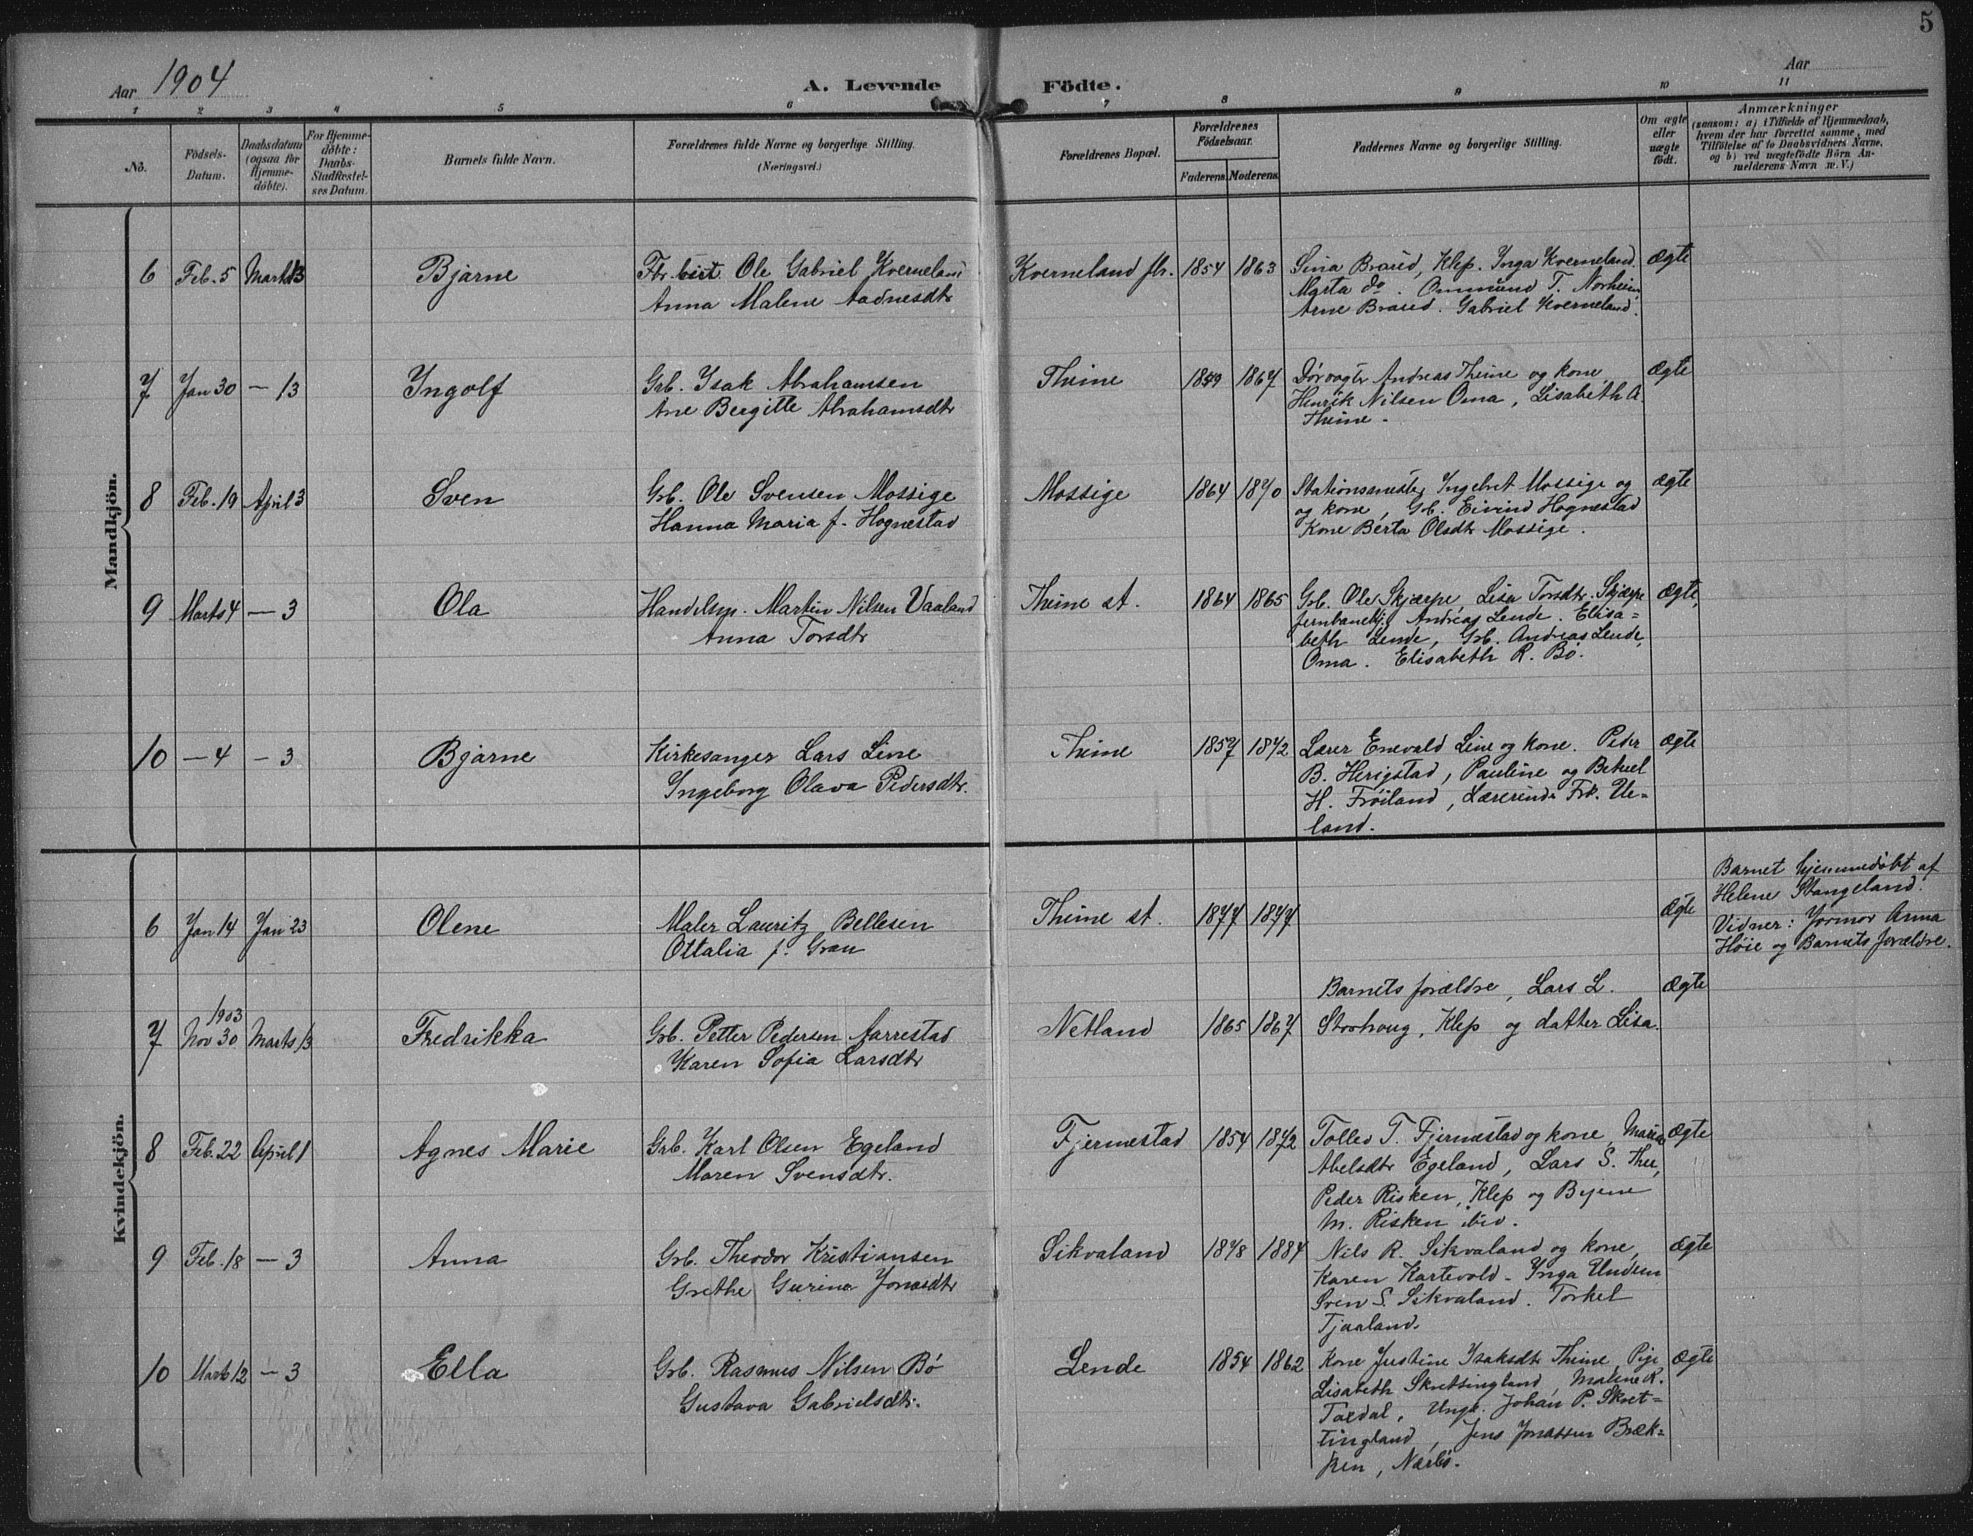 5
Aar 1904
A. Levende Födte.
Aar
1 2 3 4 5 6 7 8 9 10 11
No.
Födsels-Datum.
Daabsdatum (ogsaa for Hjemmedöbte).
For Hjemmedöbte: Daabs-Stadfæstelses Datum.
Barnets fulde Navn.
Forældrenes fulde Navne og borgerlige Stilling.
(Næringsvei.)
Forældrenes Bopæl.
Forældrenes Födselsaar.
Faderens. Moderens.
Faddernes Navne og borgerlige Stilling.
Om ægte eller uægte födt.
Anmærkninger
(saasom: a) i Tilfælde af Hjemmedaab,
hvem der har forrettet samme, med
Tilföielse af to Daabsvidners Navne,
og b) ved uægtefödte Börn Anmelderens Navn m. V.)
Mandkjön.
6 Feb. 5 Marts 13 Bjarne Ole Gabriel Kverneland Kverneland fbr. 1854 1863 Sina Braud, Klep. Inga Kverneland. Ægte
Anna Malene Aadnesdtr Marta do. Ommund T. Norheim,
Arne Braud. Gabriel Kverneland.
7 Jan 30 — 13 Ingolf Grb. Isak Abrahamsen Thime 1859 1867 Andreas Thime og kone, Ægte
Ane Bergitte Abrahamsdtr Henrik Nilsen Oma, Lisabeth A.
Thime.
8 Feb. 19 April 3 Sven Grb. Ole Svensen Mossige Mossige 1864 1870 Stationsmester Ingebret Mossige og Ægte
Hanna Maria f. Hognestad og kone, Grb. Eivind Hognestad
Kone Berta Olsdtr Mossige.
9 Marts 4 — 3 Ola Handelsm. Martin Nilsen Vaaland Thime st. 1864 1865 Grb. Ole Skjærpe, Lisa Torsdtr. Skjærpe Ægte,
Anna Torsdtr Andreas Lende. Elisa-
beth Lende, Grb. Andreas Lende,
Oma. Elisabeth R. Bø.
10 — 4 — 3 Bjarne Kirkesanger Lars Line Thime 1857 1872 Lærer Enevald Line og kone. Peder Ægte
Ingeborg Olava Pedersdtr. B. Herigstad, Pauline og Betuel
H. Frøiland, Lærerinde Frk. Ue-
land.
Kvindekjön.
6 Jan 14 Jan 23 Olene Maler Lauritz Bellesen Thime st. 1877 1877 Ægte
Ottalia f. Gran
Barnet hjemmedøbt af
Helene Stangeland.
Vidner: Jormor Anna
Høie og Barnets forældre.
Barnets forældre, Lars L. Ægte
7 1903 Nov 30 Marts 13 Fredrikka Grb. Petter Pedersen Aarrestad Netland 1865 1867 Klep og datter Lisa.
Karen Sofia Larsdtr
8 Feb. 22 April 1 Agnes Marie Grb. Karl Olsen Egeland Fjermestad 1854 1872 Tollev T. Fjermestad og kone, Maria Ægte
Maren Svensdtr. Abelsdtr Egeland, Lars S. Thu,
Peder Risken, Klep og
M. Risken ibid.
9 Feb. 18 — 3 Anna Grb. Theodor Kristiansen Sikvaland 1878 1884 Nils R. Sikvaland og kone, Ægte
Grethe Gurine Jonasdtr Karen Kartevold - Inga Undem
Sven S. Sikvaland. Torkel
Tjaaland.
10 Marts 12 — 3 Ella Grb. Rasmus Nilsen Bø Lende 1854 1862 Kone Justine Isaksdtr Thime, Pige Ægte
Gustava Gabrielsdtr. Lisabeth Skrettingland, Maline K.
Taxdal, Ungk. Johan P. Skret-
tingland, Jens Jonassen Bræk-
ken, Nærbø.